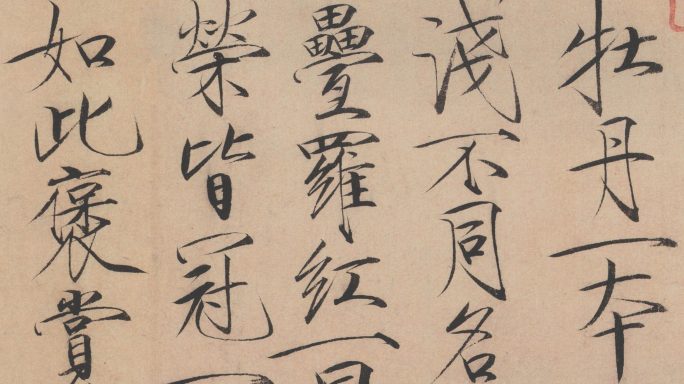 牡丹一本
淺不同名
疊羅紅一曰
榮皆冠一
如此褒賞